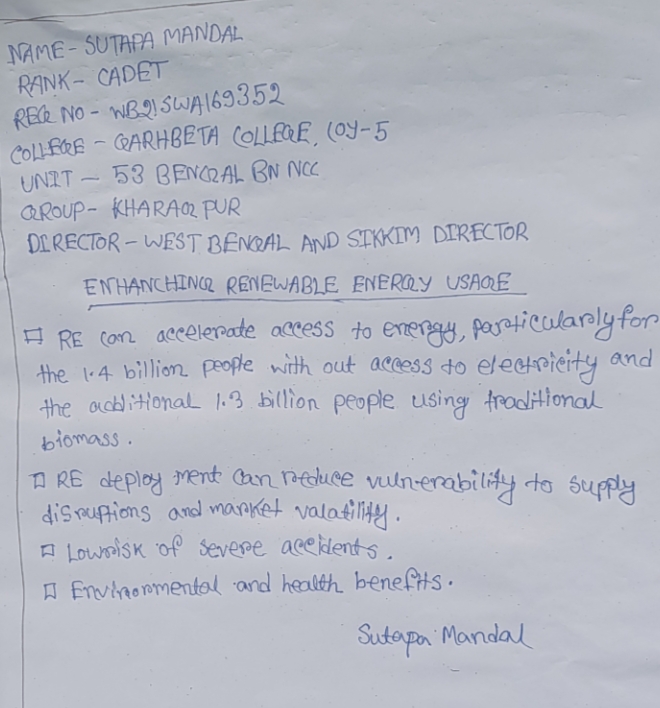 NAME - SUTAPA MANDAL
RANK - CADET
REG NO - WB21SWA169352
COLLEGE - GARHBETA COLLEGE, COY-5
UNIT - 53 BENGAL BN NCC
GROUP - KHARAGPUR
DIRECTOR - WEST BENGAL AND SIKKIM DIRECTOR
ENHANCHING RENEWABLE ENERGY USAGE
□ RE can accelerate access to energy, particularly for
the 1.4 billion people with out access to electricity and
the additional 1.3 billion people using traditional
biomass.
□ RE deploy ment can reduce vulnerability to supply
disruptions and market valatility.
□ Low risk of severe accidents.
□ Environmental and health benefits.
Sutapa Mandal